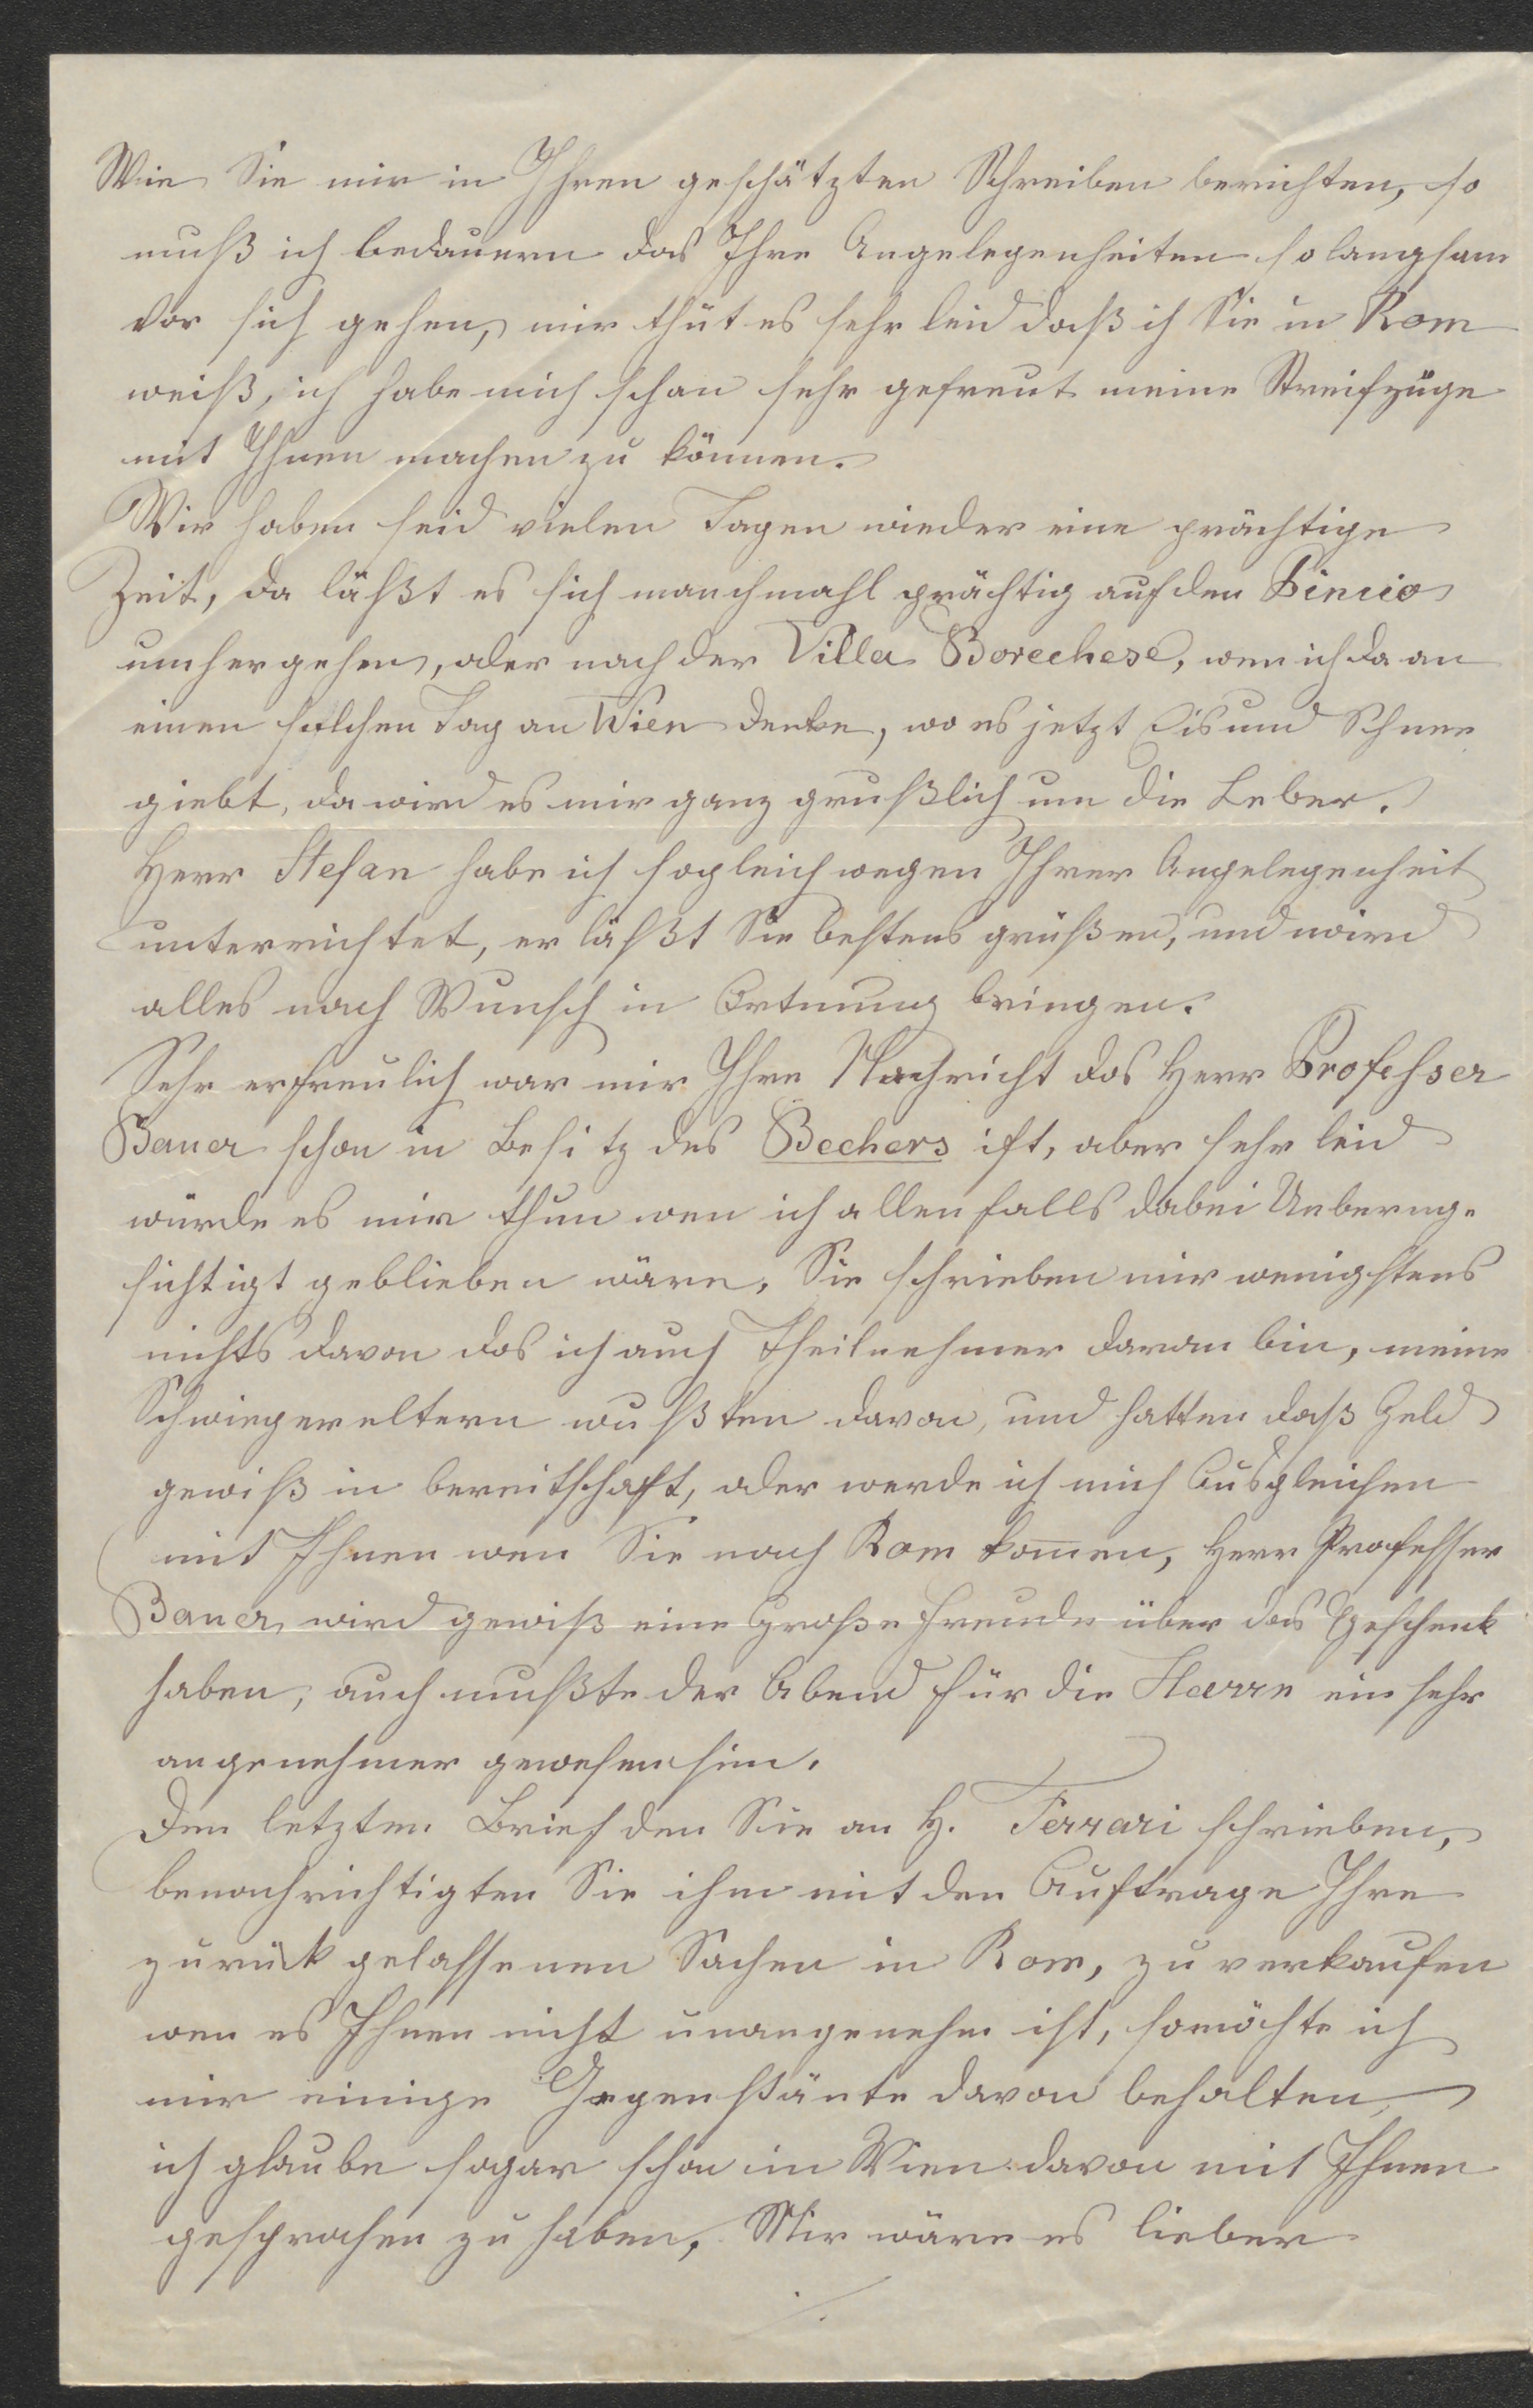 Wie Sie mir in Ihren geschätzten Schreiben berichten, so
muß ich bedauern das Ihre Angelegenheiten so langsam
vor sich gehen, mir thut es sehr leid daß ich Sie in Rom
weiß, ich habe mich schon sehr gefreut meine Streifzüge
mit Ihnen machen zu können.
Wir haben seid vielen Tagen wieder eine prächtige
Zeit, da läßt es sich manchmahl prächtig auf den Pincio
umhergehen, oder nach der Villa Borechese, wen ich da an
einen solchen Tag an Wien denke, wo es jetzt Eis und Schnee
giebt, da wird es mir ganz grußlich um die Leber.
Herr Stefan habe ich sogleich wegen Ihrer Angelegenheit
unterrichtet, er läßt Sie bestens grüßen, und wird
alles nach Wunsch in Ortnung bringen.
Sehr erfreulich war mir Ihre Nachricht das Herr Professer
Bauer schon in Besitz des Bechers ist, aber sehr leid
würde es mir thun wen ich allenfalls dabei
sichtigt geblieben wäre, Sie schrieben mir wenigstens
nichts davon das ich auch Theilnehmer daran bin, meine
Schwiegereltern wußten davon, und hatten daß Geld
gewiß in bereitschaft, oder werde ich mich Ausgleichen
mit Ihnen wen Sie nach Rom komen, Herr Professer
Bauer, wird gewiß eine Große Freude über das Geschenk
haben, auch mußte der Abend für die Herrn ein sehr
angenehmer gewesen sein.
Den letzten Brief den Sie an H. Ferrari schrieben,
benachrichtigten Sie ihm mit den Auftrage Ihre
zurük gelassenen Sachen in Rom, zu verkaufen
wen es Ihnen nicht unangenehm ist, so möchte ich
mir einige Gegenstänte davon behalten,
ich glaube sogar schon in Wien davon mit Ihnen
gesprochen zu haben, Mir wäre es lieber
./.